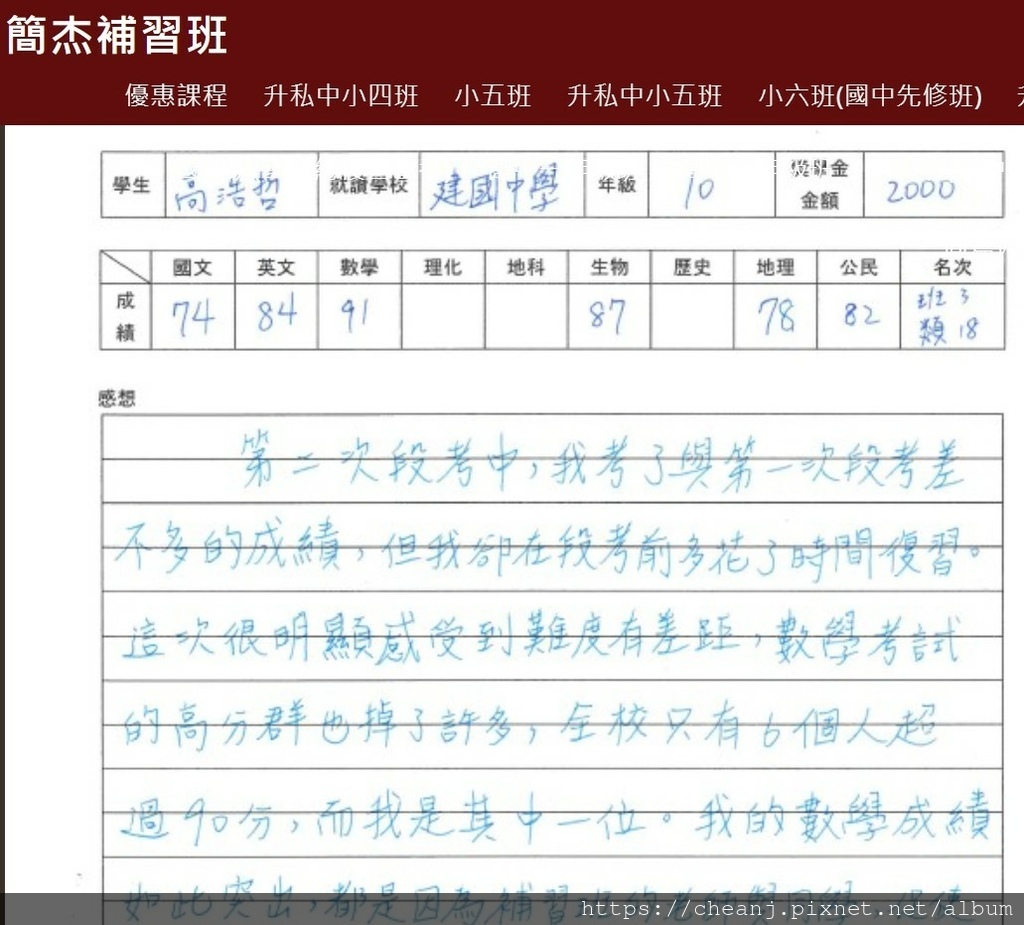 簡杰補習班
優惠課程 升私中小四班 小五班 升私中小五班 小六班(國中先修班)
學生 高浩哲 就讀學校 建國中學 年級 10 金額 2000
國文 英文 數學 理化 地科 生物 歷史 地理 公民 名次
成績 74 84 91 87 78 82 班 3 類 18
感想
第二次段考中,我考了與第一次段考差
不多的成績,但我卻在段考前多花了時間復習。
這次很明顯感受到難度有差距,數學考試
的高分群也掉了許多,全校只有6個人超
過90分,而我是其中一位。我的數學成績
如此突出,都是因為補習班的老師與同學
https://cheanj.pixnet.net/album